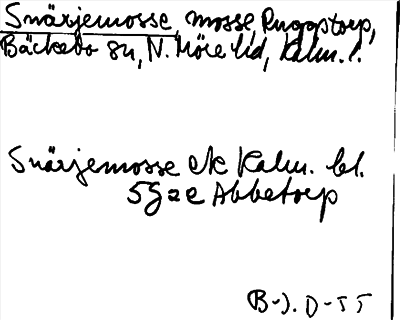 Snärjemosse, mosse, Ruggstorp,
Bäckebo sn, N. Möre hd, Kalm. l.
Snärjemosse ek Kalm. bl.
5G2e Abbetorp
B-J. D-TT